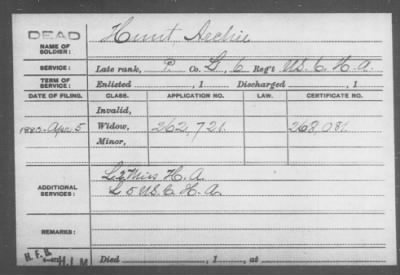 DEAD
NAME OF SOLDIER: Hunt, Archie
SERVICE: Late rank, P. Co. L, 6 Reg't U.S.C.H.A.
TERM OF SERVICE: Enlisted , 1 Discharged , 1
DATE OF FILING. CLASS. APPLICATION NO. LAW. CERTIFICATE NO.
Invalid,
Apr. 5 Widow, 262,721. 268,081.
Minor,
ADDITIONAL SERVICES: L 2 Miss H.A.
L 5 U.S.C.H.A.
REMARKS:
H.F.B. H.L.M. Died , 1 , at